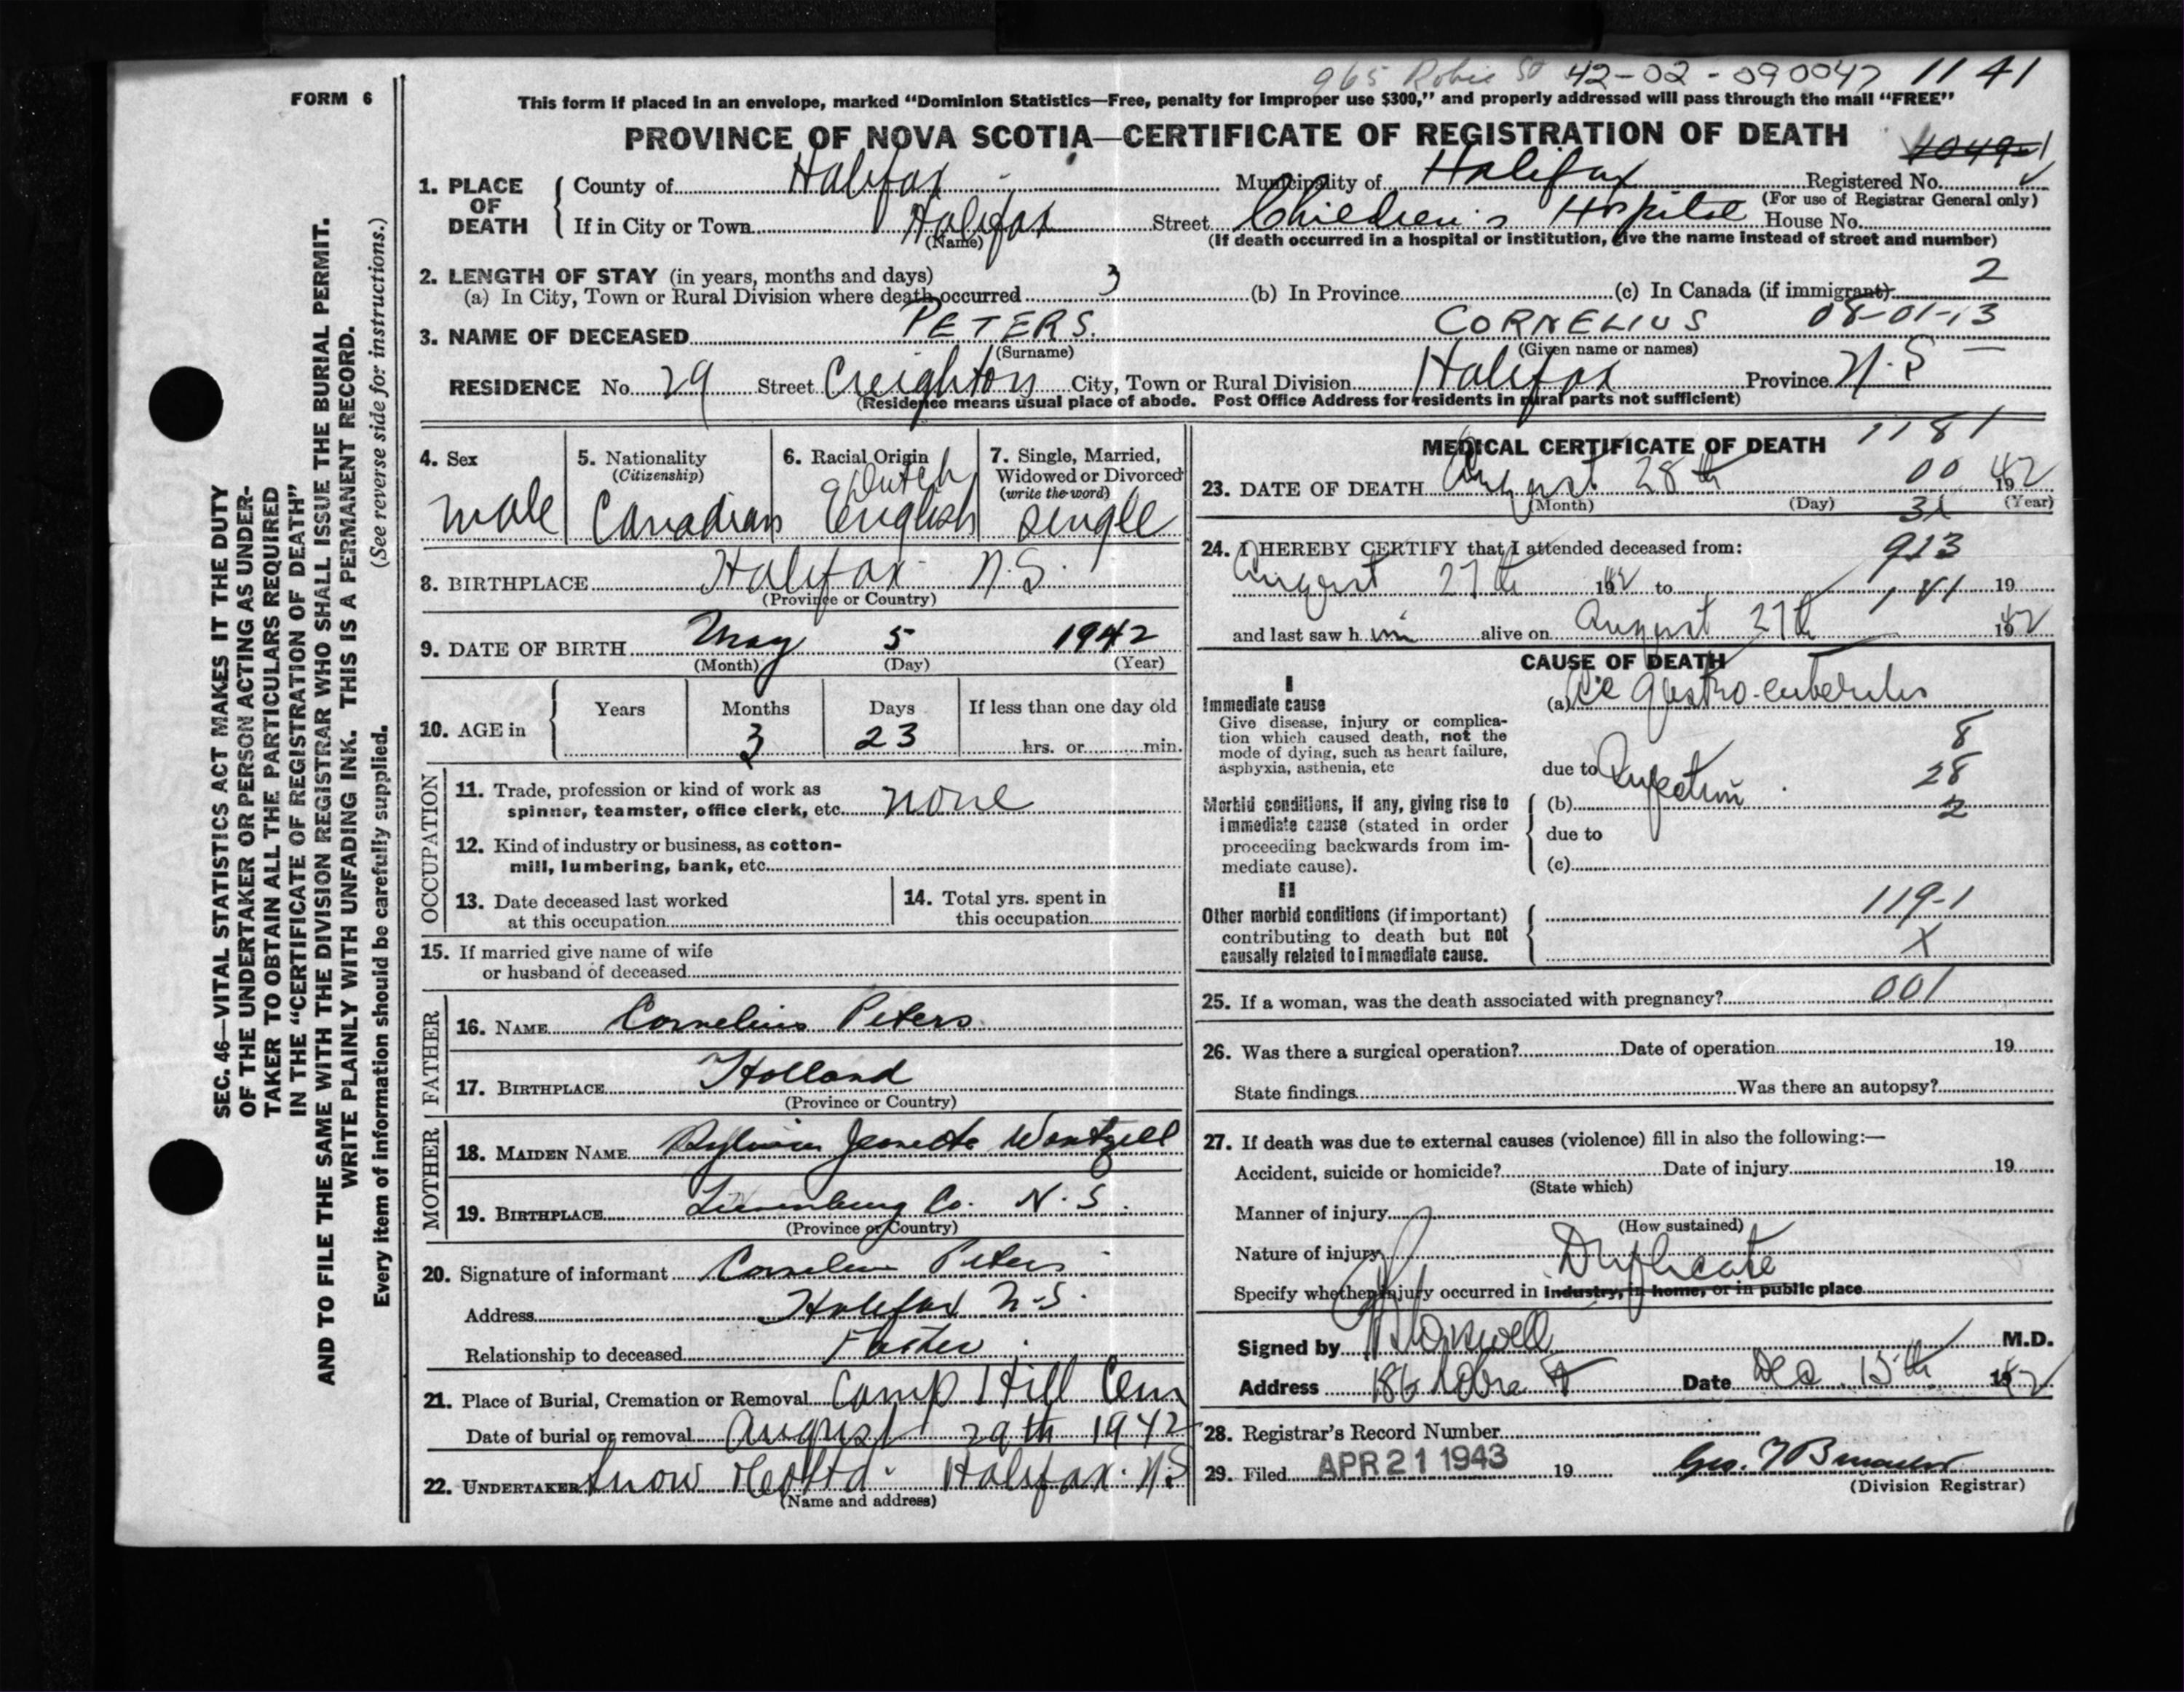 965 Robie St 42-02-090047 1141
FORM 6
This form if placed in an envelope, marked "Dominion Statistics—Free, penalty for improper use $300," and properly addressed will pass through the mail "FREE"
PROVINCE OF NOVA SCOTIA—CERTIFICATE OF REGISTRATION OF DEATH
1. PLACE OF DEATH
County of Halifax Municipality of Halifax Registered No.
(For use of Registrar General only)
If in City or Town Halifax Street Children's Hospital House No.
(Name) (If death occurred in a hospital or institution, give the name instead of street and number)
2. LENGTH OF STAY (in years, months and days)
(a) In City, Town or Rural Division where death occurred 3 (b) In Province (c) In Canada (if immigrant) 2
3. NAME OF DECEASED PETERS. CORNELIUS 08-01-13
(Surname) (Given name or names)
RESIDENCE No. 29 Street Creighton City, Town or Rural Division Halifax Province N.S
(Residence means usual place of abode. Post Office Address for residents in rural parts not sufficient)
4. Sex
male
5. Nationality
(Citizenship)
Canadian
6. Racial Origin
Dutch
English
7. Single, Married,
Widowed or Divorced
(write the word)
single
8. BIRTHPLACE Halifax N.S.
(Province or Country)
9. DATE OF BIRTH May 5 1942
(Month) (Day) (Year)
10. AGE in
Years Months Days If less than one day old
3 23 hrs. or min.
OCCUPATION
11. Trade, profession or kind of work as
spinner, teamster, office clerk, etc. none
12. Kind of industry or business, as cotton-
mill, lumbering, bank, etc.
13. Date deceased last worked
at this occupation
14. Total yrs. spent in
this occupation
15. If married give name of wife
or husband of deceased
FATHER
16. NAME Cornelius Peters
17. BIRTHPLACE Holland
(Province or Country)
MOTHER
18. MAIDEN NAME Wentzell
19. BIRTHPLACE Lunenburg Co. N.S.
(Province or Country)
20. Signature of informant Cornelius Peters
Address Halifax N.S.
Relationship to deceased Father
21. Place of Burial, Cremation or Removal Camp Hill Cem
Date of burial or removal August 29th 1942
22. UNDERTAKER Snow & Co Ltd. Halifax. N.S
(Name and address)
MEDICAL CERTIFICATE OF DEATH 1181
23. DATE OF DEATH August 28th 00 1942
(Month) (Day) (Year)
31
24. I HEREBY CERTIFY that I attended deceased from: 913
August 27th 1942 to 181 19
and last saw h im alive on August 27th 1942
CAUSE OF DEATH
I
Immediate cause
Give disease, injury or complica-
tion which caused death, not the
mode of dying, such as heart failure,
asphyxia, asthenia, etc
(a) gastro-enteritis
8
due to Infection 28
Morbid conditions, if any, giving rise to
immediate cause (stated in order
proceeding backwards from im-
mediate cause).
(b) 2
due to
(c)
II
Other morbid conditions (if important)
contributing to death but not
causally related to immediate cause.
119-1
X
25. If a woman, was the death associated with pregnancy? 001
26. Was there a surgical operation? Date of operation 19
State findings Was there an autopsy?
27. If death was due to external causes (violence) fill in also the following:—
Accident, suicide or homicide? Date of injury 19
(State which)
Manner of injury
(How sustained)
Nature of injury Duplicate
Specify whether injury occurred in industry, in home, or in public place
Signed by M.D.
Address 186 Date Dec. 15th 1942
28. Registrar's Record Number
29. Filed APR 21 1943 19
(Division Registrar)
SEC. 46—VITAL STATISTICS ACT MAKES IT THE DUTY
OF THE UNDERTAKER OR PERSON ACTING AS UNDER-
TAKER TO OBTAIN ALL THE PARTICULARS REQUIRED
IN THE "CERTIFICATE OF REGISTRATION OF DEATH"
AND TO FILE THE SAME WITH THE DIVISION REGISTRAR WHO SHALL ISSUE THE BURIAL PERMIT.
WRITE PLAINLY WITH UNFADING INK. THIS IS A PERMANENT RECORD.
Every item of information should be carefully supplied. (See reverse side for instructions.)